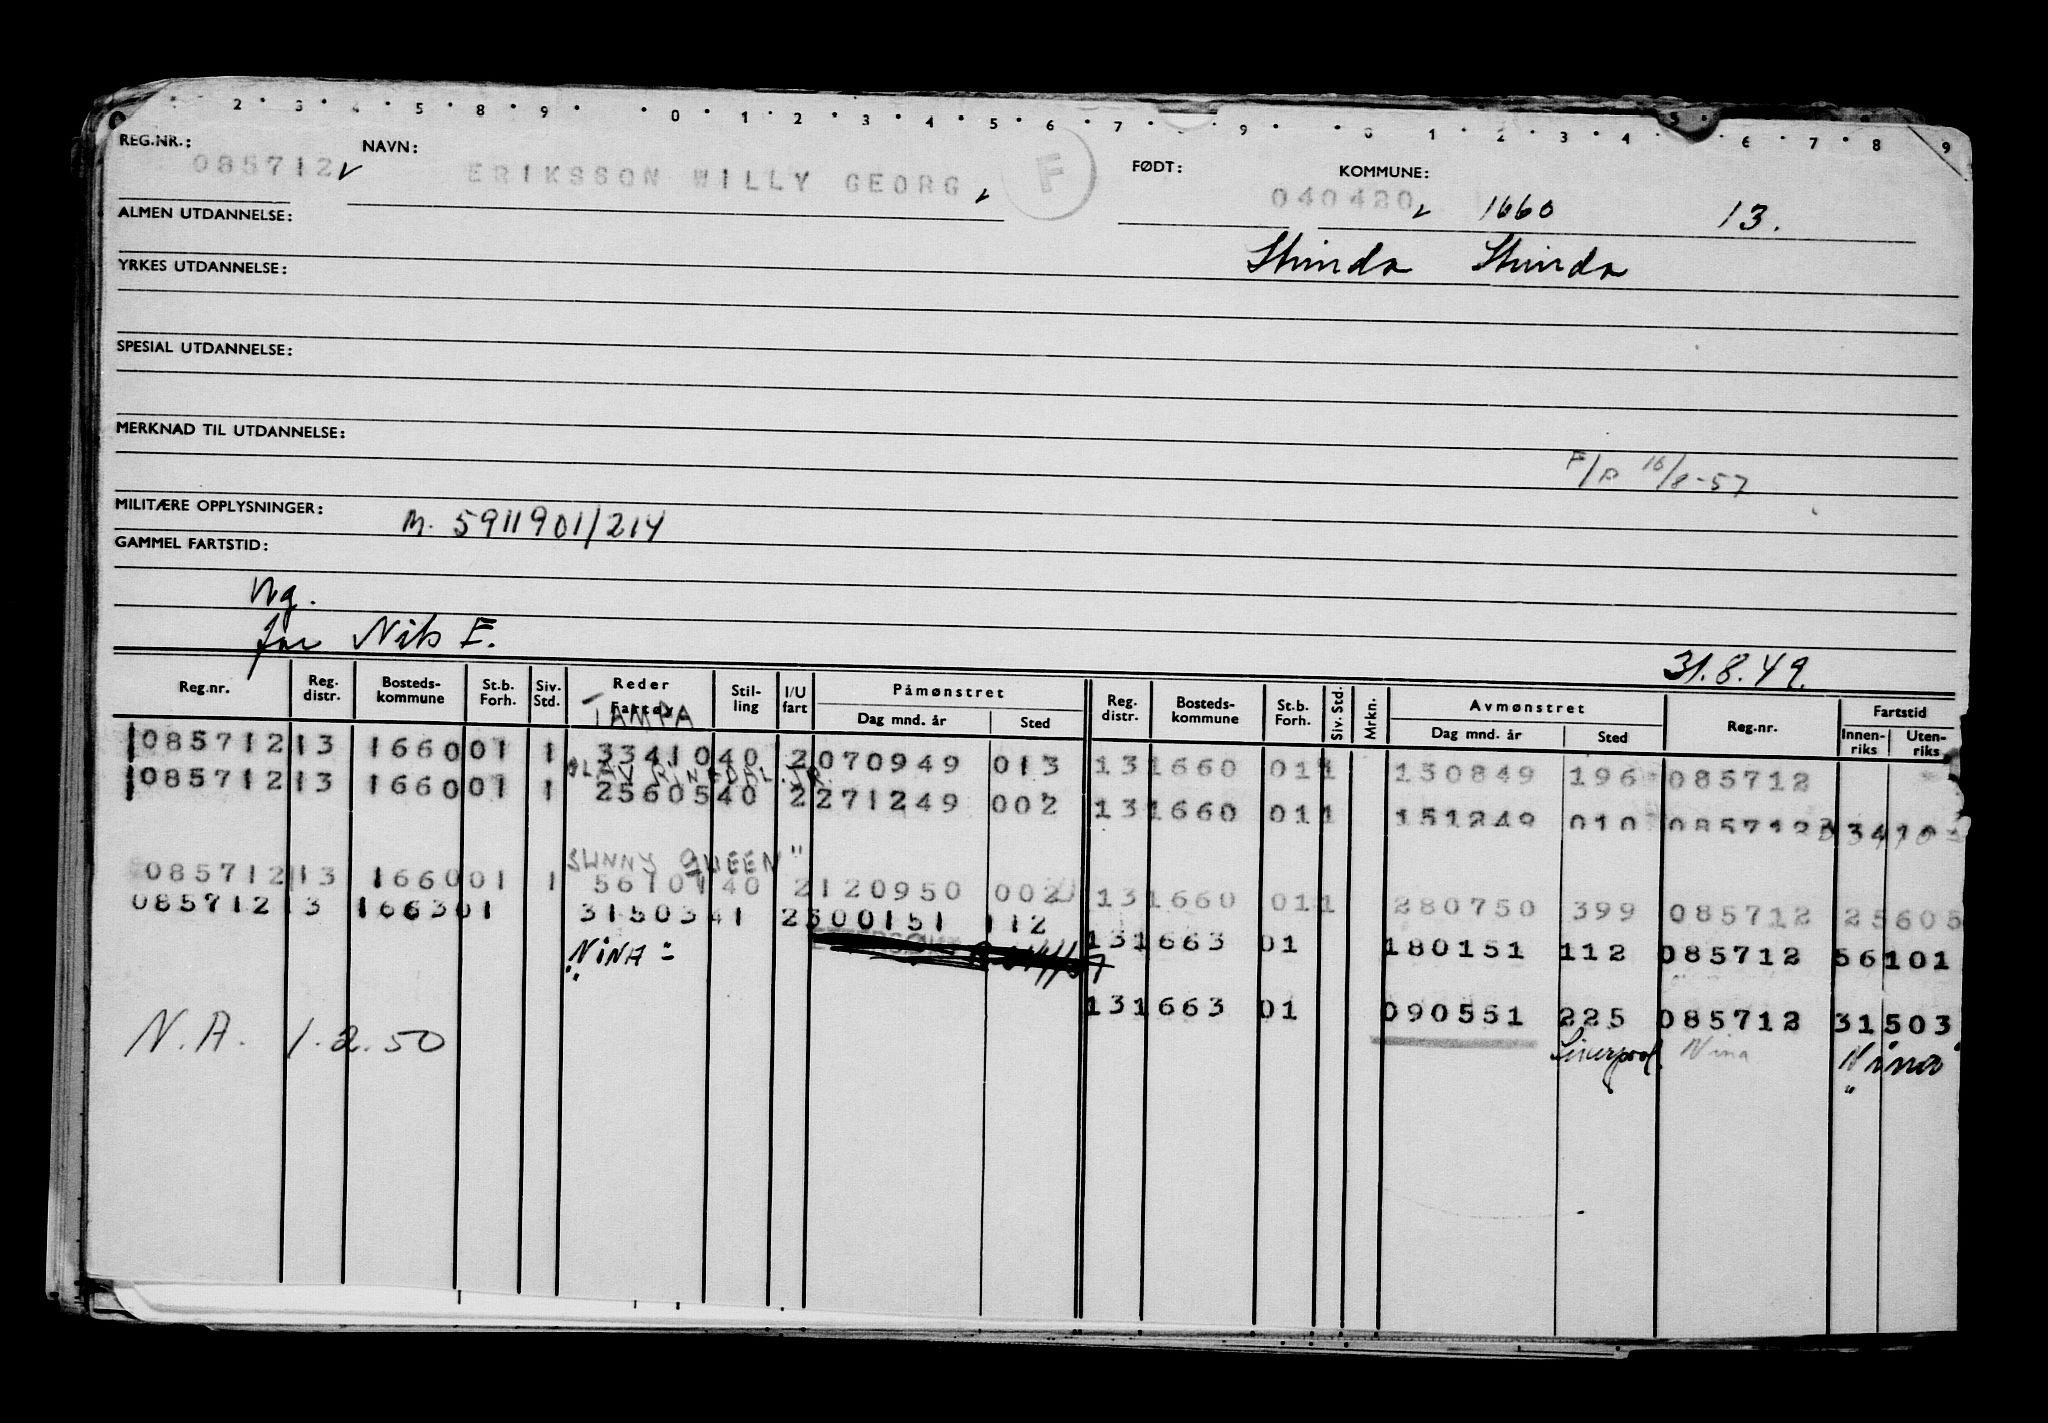 2 3 4 5 8 9 0 1 2 3 4 5 6 7 9 0 1 2 3 4 5 6 7 8 9
REG.NR.: NAVN: FØDT: KOMMUNE:
085712 ERIKSSON WILLY GEORG F 040420 1660 13.
ALMEN UTDANNELSE: Strinda Strinda
YRKES UTDANNELSE:
SPESIAL UTDANNELSE:
MERKNAD TIL UTDANNELSE:
F/P 16/8-57
MILITÆRE OPPLYSNINGER: M. 5911901/214
GAMMEL FARTSTID:
Ng.
far Nils E.
31.8.49.
Reg.nr. Reg. distr. Bosteds-kommune St.b. Forh. Siv. Std. Reder Fartøy Stil-ling I/U fart Påmønstret Dag mnd. år Sted Reg. distr. Bosteds-kommune St.b. Forh. Siv. Std. Mrkn. Avmønstret Dag mnd. år Sted Reg.nr. Fartstid Innen-riks Uten-riks
TAMPA
085712 13 1660 01 1 33410 40 2 070949 013 13 1660 01 1 130849 196 085712
OLAV RINGDAL JR.
085712 13 1660 01 1 25605 40 2 271249 002 13 1660 01 1 151249 010 085712
SUNNY QUEEN"
085712 13 1660 01 1 56101 40 2 120950 002 13 1660 01 1 280750 399 085712 25605
085712 13 1663 01 31503 41 2 500151 112 13 1663 01 180151 112 085712 56101
"NINA"
13 1663 01 090551 225 085712 31503
N.A. 1.2.50 Liverpool Nina "Nina"